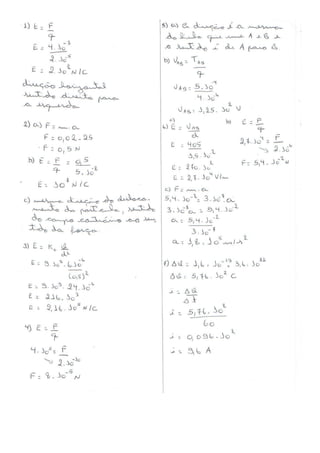 1) E = F
q
E = 4.10⁻⁵
2.10⁻⁸
E = 2.10³ N/C
direção horizontal
sentido direita para
a esquerda
2) a) F = m.a
F = 0,02.25
F = 0,5 N
b) E = F = 0,5
q 5.10⁻⁸
E = 10⁸ N/C
c) mesma direção do desloca-
mento da partícula, sentido
do campo contrário ao sen-
tido da força
3) E = K. Q
d²
E = 9.10⁹.6.10⁻⁶
(0,5)²
E = 9.10³.24.10⁻⁶
E = 216.10³
E = 2,16.10⁵ N/C
4) E = F
q
4.10⁵ = F
2.10⁻¹⁰
F = 8.10⁻⁵ N
5) a) A direção é a mesma
da linha que une A e B e
o sentido é de A para B.
b) VAB = TAB
q
VAB = 5.10⁻⁴
4.10⁻⁶
VAB = 1,25.10² V
6) a) E = VAB
d
E = 405
1,5.10⁻²
E = 270.10²
E = 2,7.10⁴ V/m
b) E = F
q
2,7.10⁴ = F
2.10⁻⁶
F = 5,4.10⁻² N
c) F = m.a
5,4.10⁻² = 3.10⁻⁸.a
3.10⁻⁸a = 5,4.10⁻²
a = 5,4.10⁻²
3.10⁻⁸
a = 1,8.10⁶ m/s²
7) ΔQ = 1,6.10⁻¹⁹.3,6.10²⁰
ΔQ = 5,76.10² C
i = ΔQ
Δt
i = 5,76.10²
60
i = 0,096.10²
i = 9,6 A